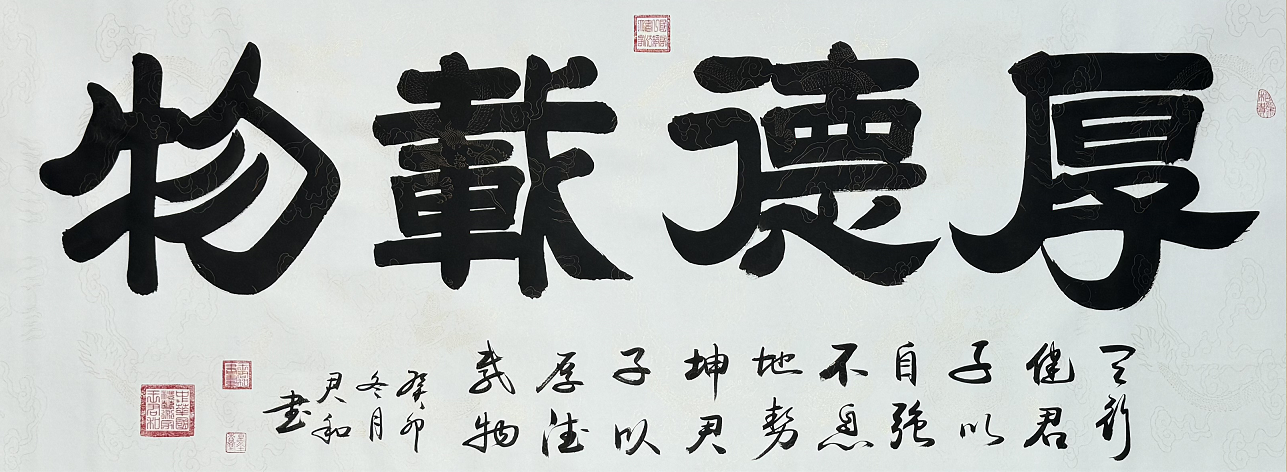 厚德載物
天行
健君
子以
自強
不息
地勢
坤君
子以
厚德
載物
癸卯
冬月
君和
書